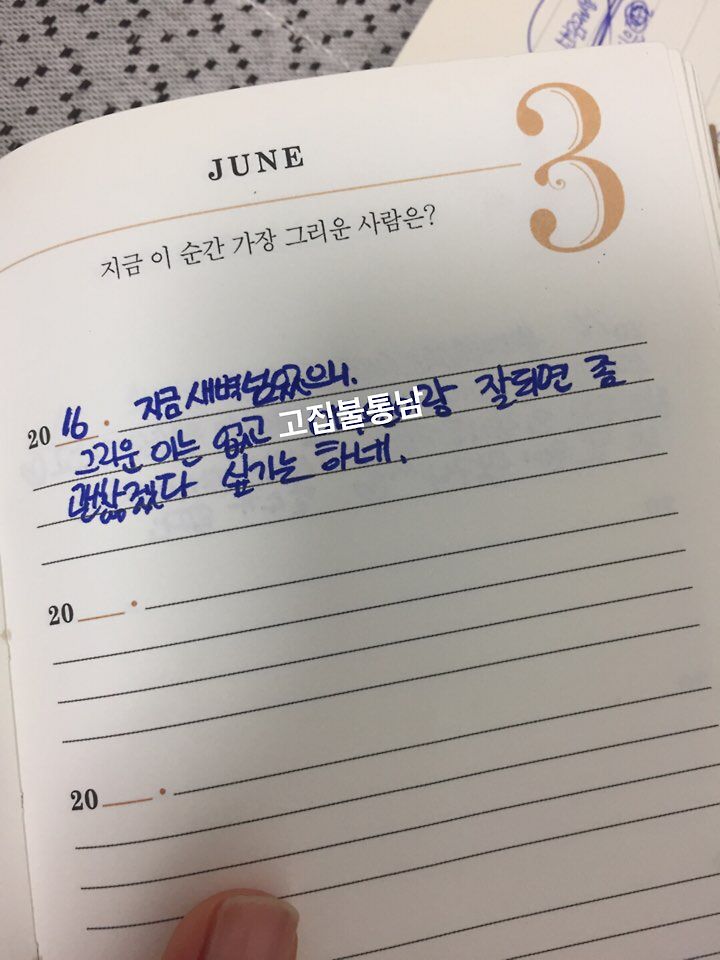 JUNE 3
지금 이 순간 가장 그리운 사람은?
20 16. 지금 새벽넘었으니.
그리운 이는 없고 고집불통남랑 잘되면 좀
괜찮겠다 싶기는 하네.
20
20